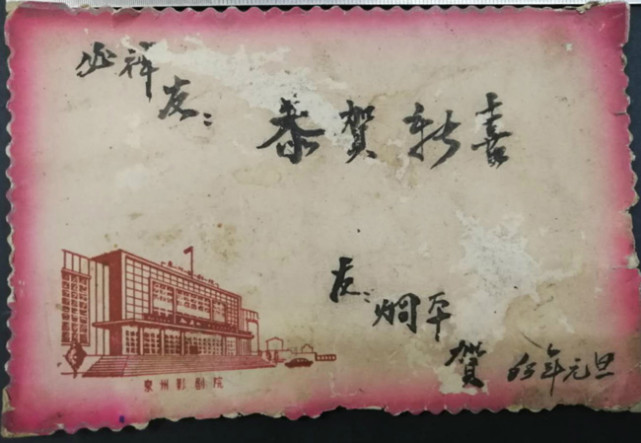 必祥
友：
恭贺新喜
友：炯平
贺
65年元旦
泉州影剧院